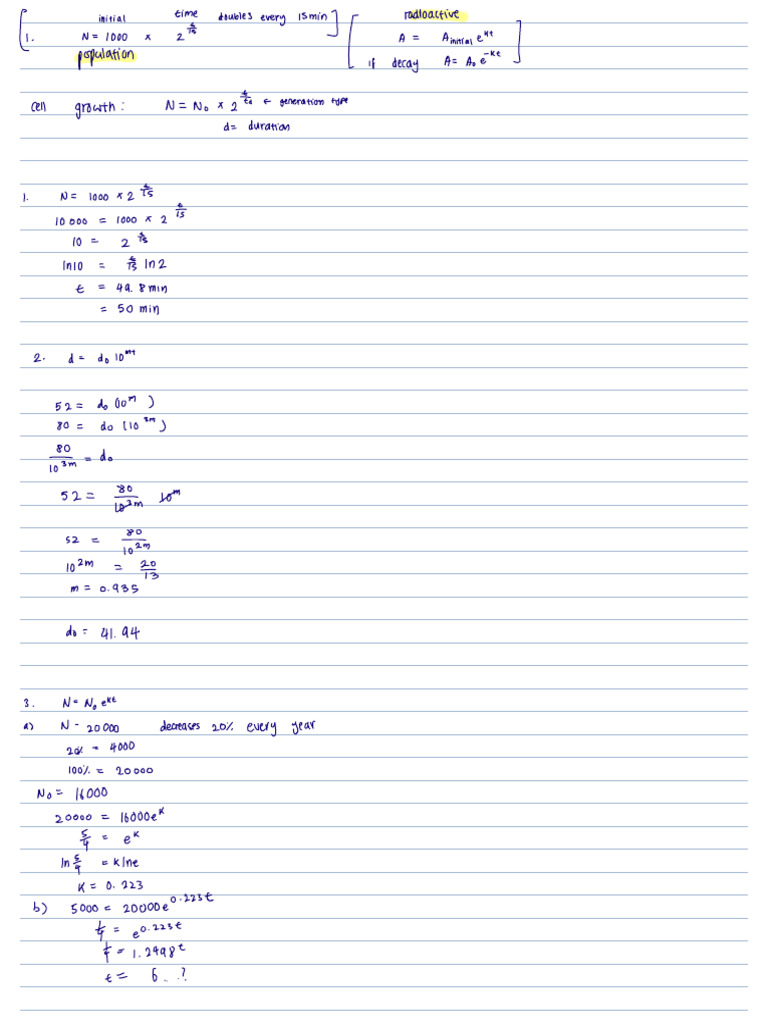 initial time doubles every 15min
1. N = 1000 × 2^(t/15)
population
radioactive
A = A initial e^kt
if decay A = A₀ e^-kt
Cell growth : N = N₀ × 2^(t/td) ← generation type
d = duration
1. N = 1000 × 2^(t/15)
10 000 = 1000 × 2^(t/15)
10 = 2^(t/15)
ln10 = t/15 ln2
t = 49.8min
= 50 min
2. d = d₀ 10^mt
52 = d₀ (10^m )
80 = d₀ (10^3m )
80/10^3m = d₀
52 = 80/10^3m 10^m
52 = 80/10^2m
10^2m = 20/13
m = 0.935
d₀ = 41.94
3. N = N₀ e^kt
a) N - 20 000 decreases 20% every year
20% = 4000
100% = 20000
N₀ = 16000
20000 = 16000e^k
5/4 = e^k
ln 5/4 = k lne
k = 0.223
b) 5000 = 20000e^0.223t
1/4 = e^0.223t
1/4 = 1.2498^t
t = 6...?